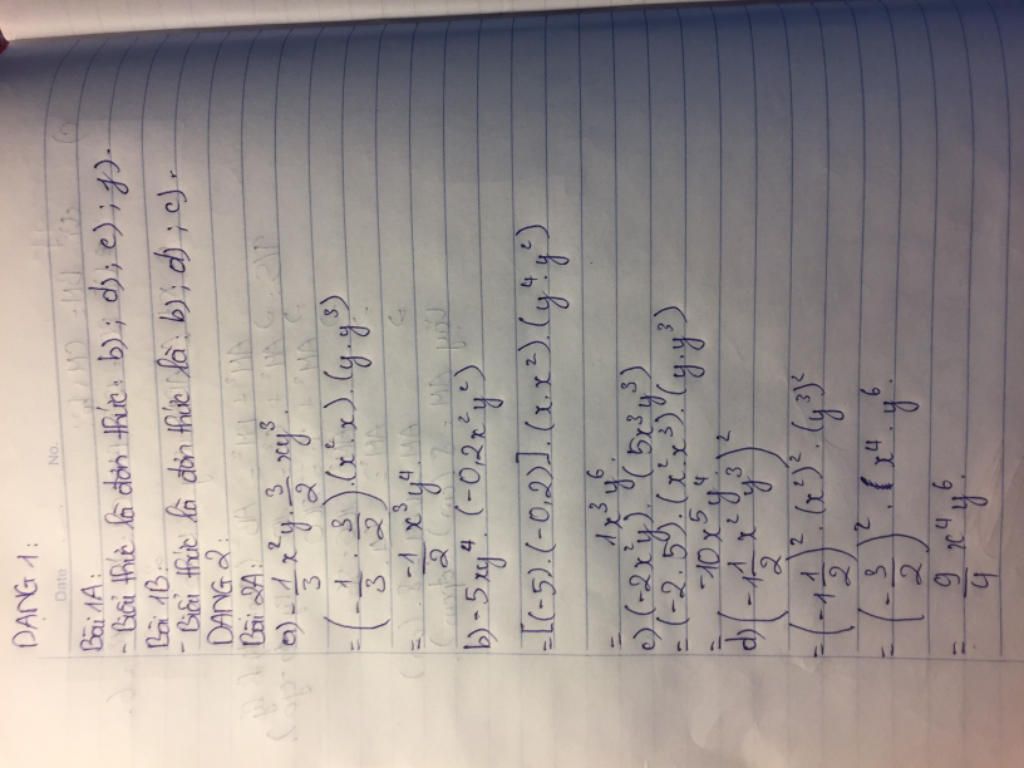 No.
Date
DẠNG 1:
Bài 1A:
- Biểu thức là đơn thức: b); d); e); f).
Bài 1B
- Biểu thức là đơn thức là: b); d); e).
DẠNG 2:
Bài 2A:
a) -1/3 x²y · 3/2 xy³.
= (-1/3 · 3/2) · (x² · x) · (y · y³)
= -1/2 x³y⁴.
b) -5xy⁴ · (-0,2x²y²)
= [(-5) · (-0,2)] · (x · x²) · (y⁴ · y²)
= 1x³y⁶.
c) (-2x²y) · (5x³y³)
= (-2 · 5) · (x² x³) · (y · y³)
= -10x⁵y⁴
d) (-1 1/2 x²y³)²
= (-1 1/2)² · (x²)² · (y³)²
= (-3/2)² · x⁴ · y⁶.
= 9/4 x⁴y⁶.